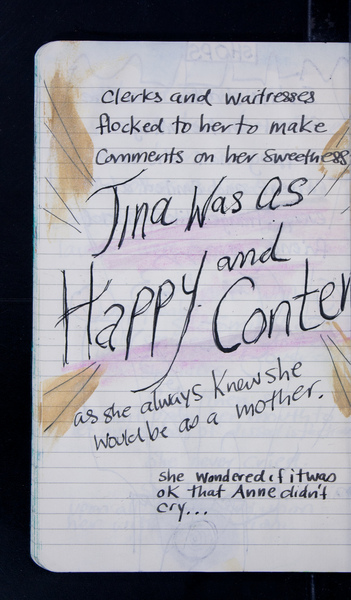 Clerks and waitresses
flocked to her to make
Comments on her sweetness
Tina was as
Happy and
Conten
as she always knew she
would be as a mother.
she wondered if it was
ok that Anne didn't
cry...